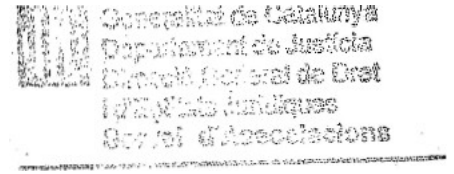 Generalitat de Catalunya
Departament de Justícia
Direcció General de Dret
i Entitats Jurídiques
Servei d'Associacions